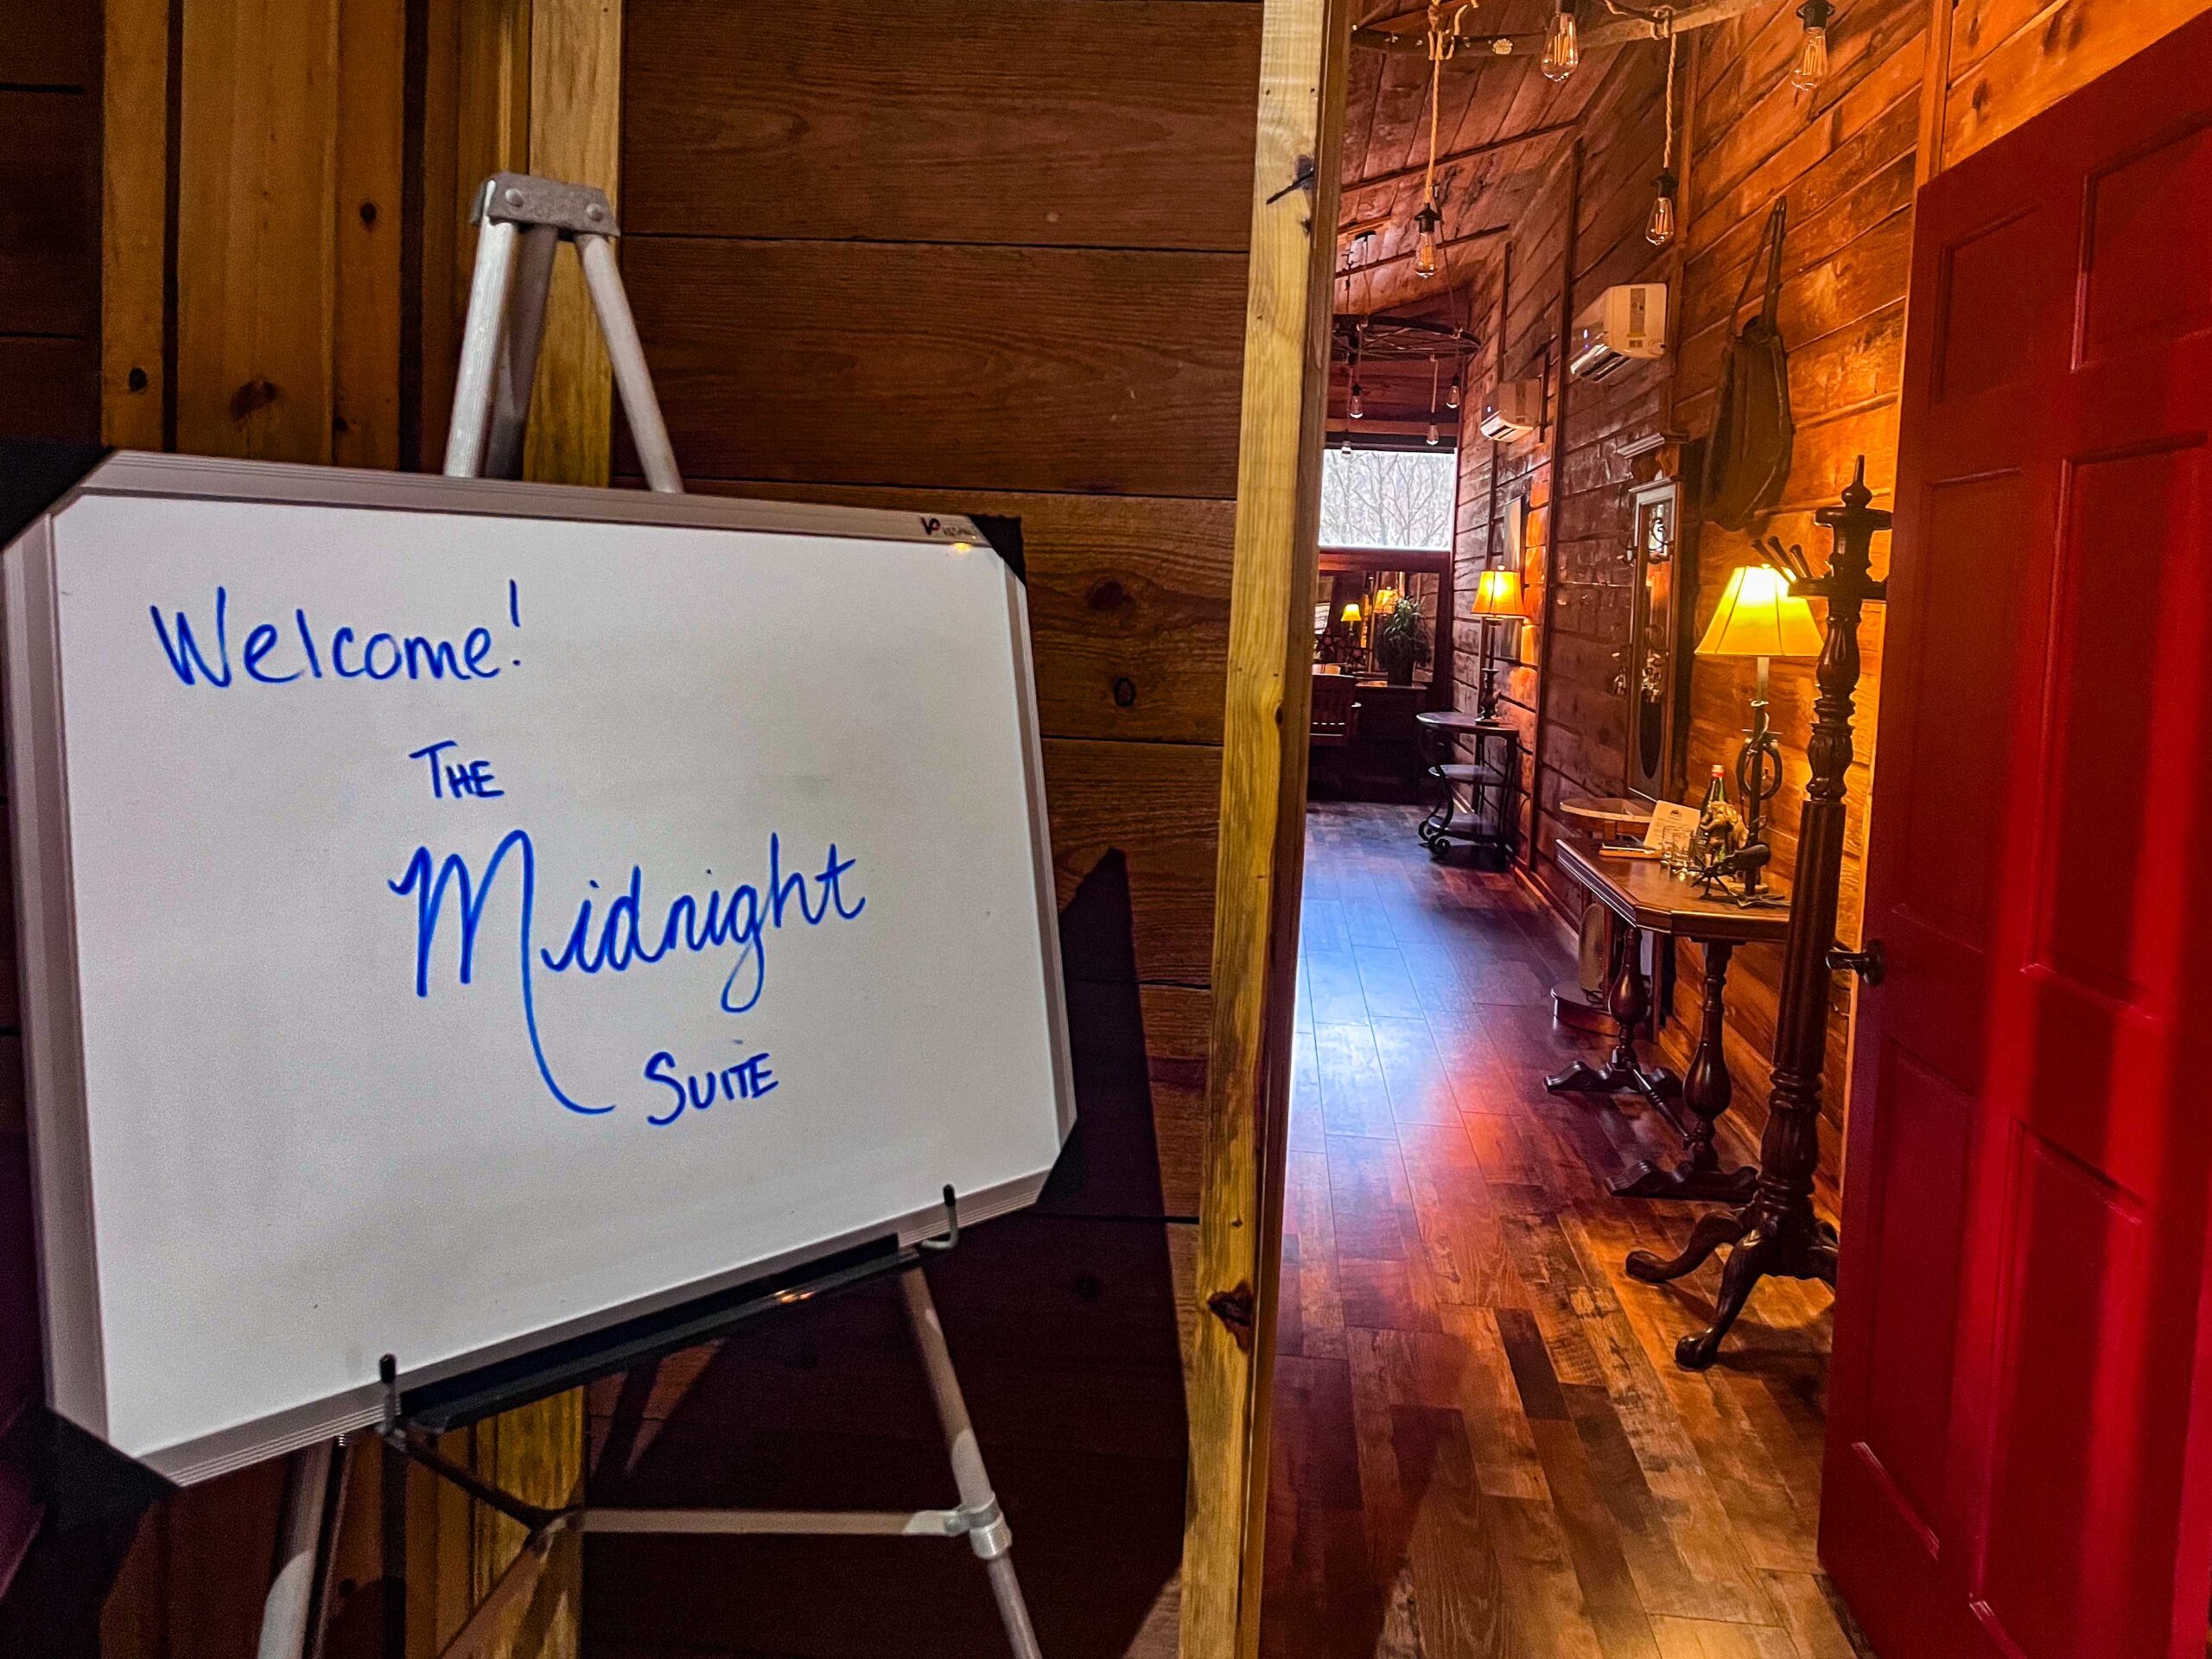 Welcome!
THE
Midnight
SUITE